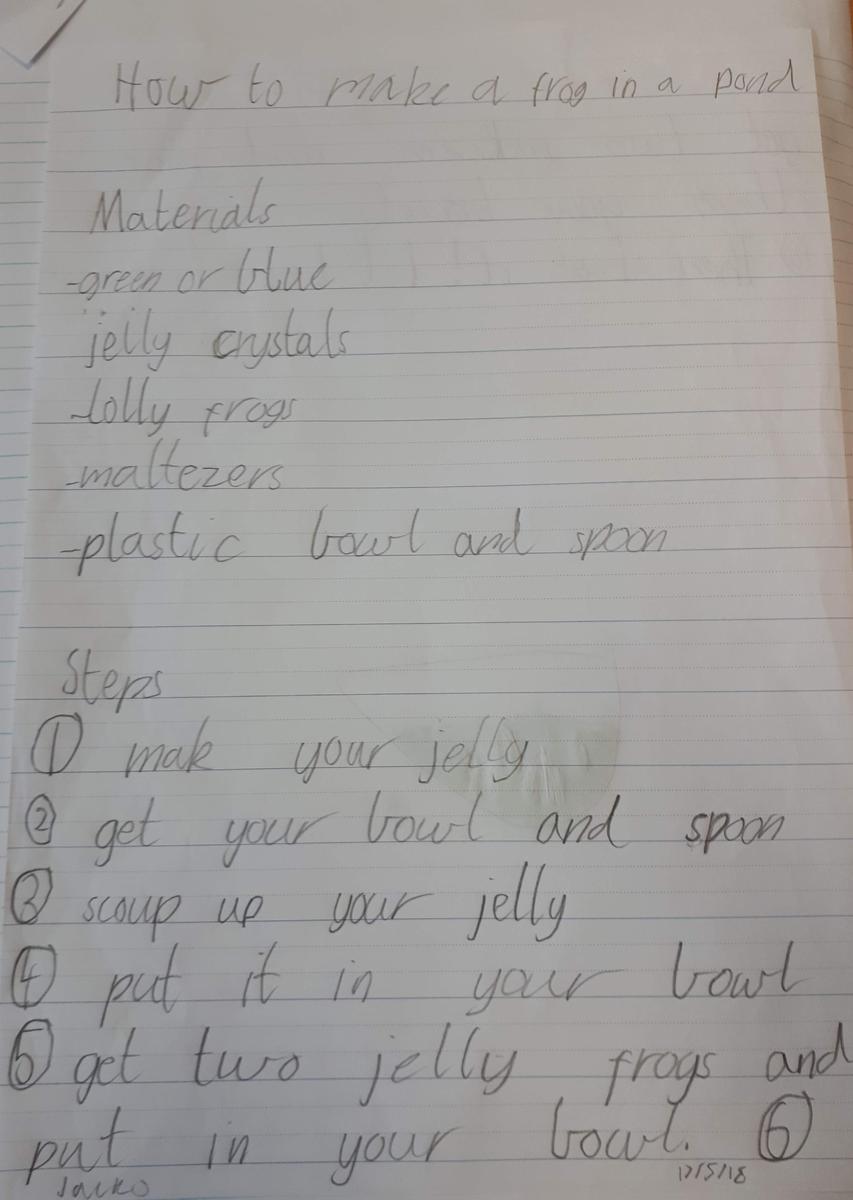 How to make a frog in a pond
Materials
-green or blue
jelly crystals
-lolly frogs
-maltezers
-plastic bowl and spoon
Steps
① mak your jelly
② get your bowl and spoon
③ scoup up your jelly
④ put it in your bowl
⑤ get two jelly frogs and
put in your bowl. ⑥